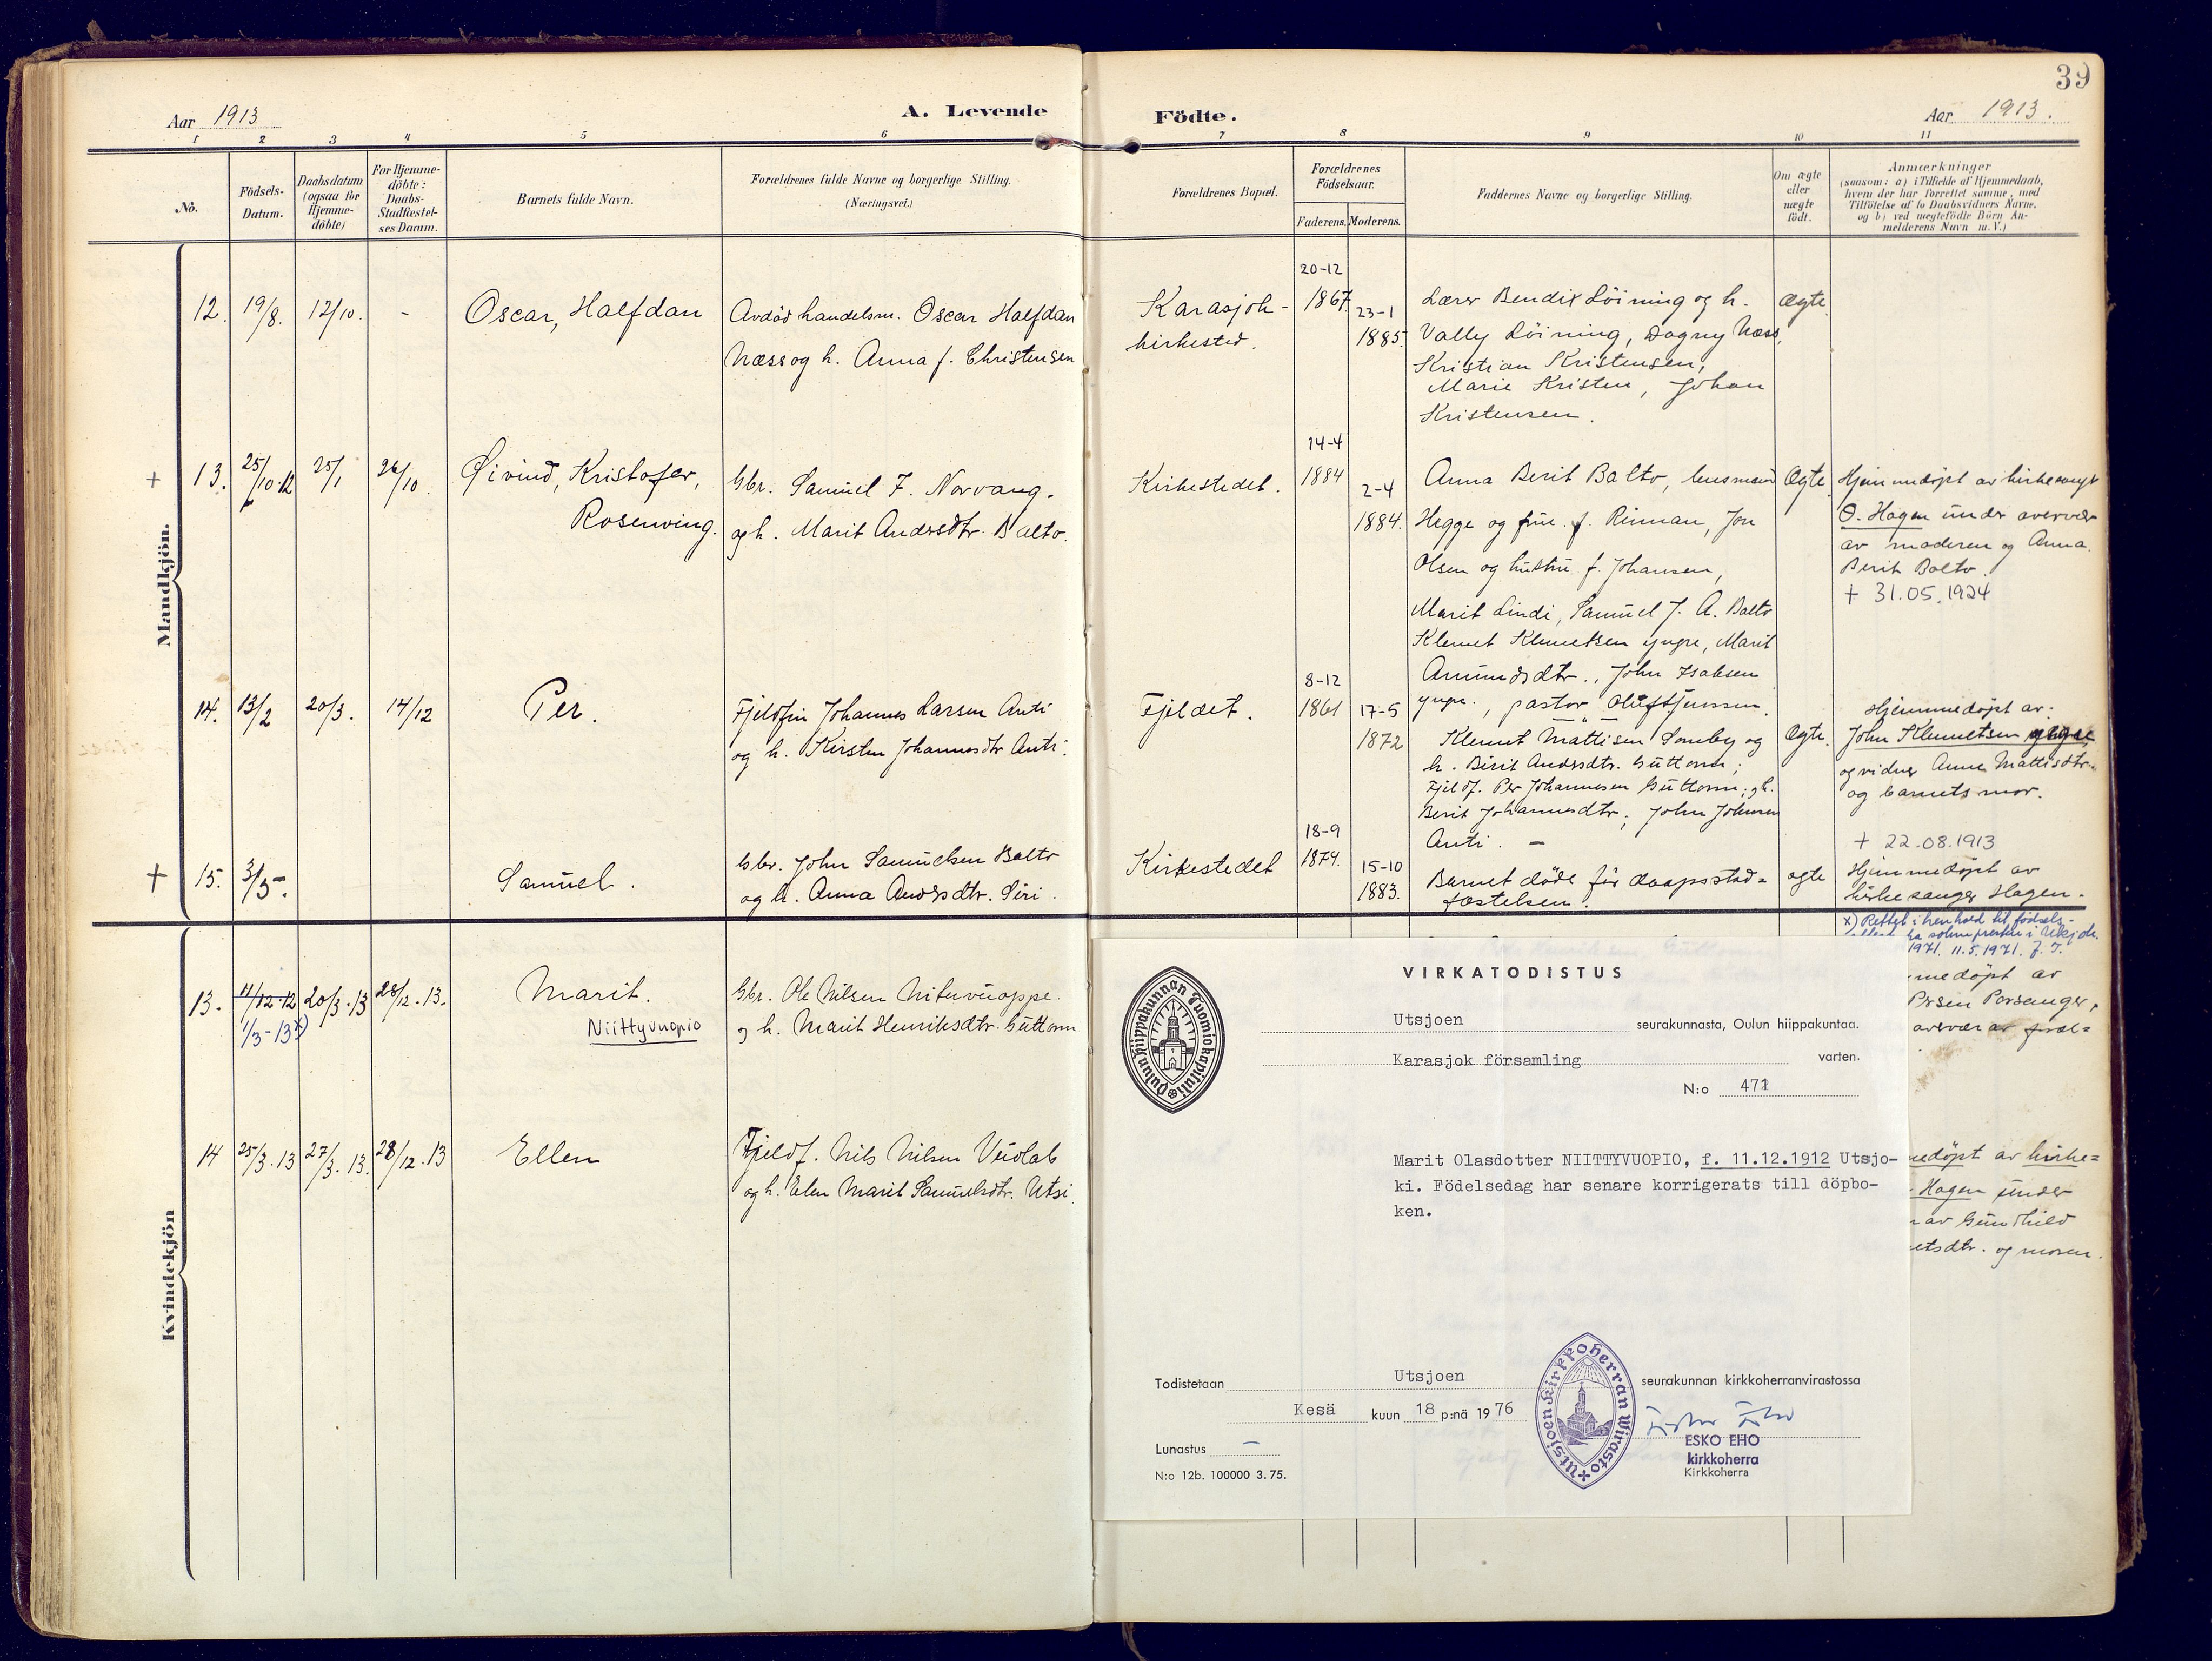 39
Aar 1913
A. Levende
Födte.
Aar 1913.
1 2 3 4 5 6 7 8 9 10 11
No.
Födsels-
Datum.
Daabsdatum
(ogsaa for
Hjemme-
döbte)
For Hjemme-
döbte:
Daabs-
Stadfæstel-
ses Datum.
Barnets fulde Navn.
Forældrenes fulde Navne og borgerlige Stilling.
(Næringsvei.)
Forældrenes Bopæl.
Forældrenes
Födselsaar.
Faderens. Moderens.
Faddernes Navne og borgerlige Stilling.
Om ægte
eller
uægte
födt.
Anmærkninger
(saasom: a) i Tilfælde af Hjemmedaab,
hvem der har forrettet samme, med
Tilföielse af to Daabsvidners Navne,
og b) ved uægtefödte Börn An-
melderens Navn m. V.)
Mandkjön.
12. 19/8. 12/10. -
Oscar, Halfdan
Avdød handelsm. Oscar Halfdan
Næss og h. Anna f. Christensen
Karasjok-
kirkested.
20-12
1867
23-1
1885.
Lærer Bendix Löining og h.
Vally Löining, Dagny Næss,
Kristian Kristensen,
Marie Kristen, Johan
Kristensen.
Ægte
+ 13. 25/10.12 25/1 26/10.
Øivind, Kristofer,
Rosenving.
Gbr. Samuel F. Norvang.
og h. Marit Andersdtr. Balto.
Kirkestedet.
14-4
1884
2-4
1884.
Anna Berit Balto, lensmand
Hegge og frue f. Rinman, Jon
Olsen og hustru f. Johansen,
Marit Lindi, Samuel J. A. Balto
Klemet Klemetsen yngre, Marit
Amundsdtr., John Isaksen
yngre., pastor Oluf Jenssen.
Ægte.
Hjemmedöpt av kirkesanger
O. Hagen under overvær
av moderen og Anna
Berit Balto.
+ 31.05.1924
14. 13/2 20/3. 14/12
Per.
Fjeldfin Johannes Larsen Anti
og h. Kirsten Johannesdtr Anti.
Fjeldet.
8-12
1861
17-5
1872
Klemet Mattisen Somby og
h. Berit Andersdtr. Guttorm;
Fjeldf. Per Johannesen Guttorm; og h.
Berit Johannesdtr; John Johnsen
Anti. -
Ægte.
Hjemmedöpt av:
John Klemetsen yngre
og vidner Anne Mattisdtr.
og barnets mor.
+ 22.08.1913
+ 15. 3/5.
Samuel.
Gbr. John Samuelsen Balto
og h. Anna Andersdtr. Siri.
Kirkestedet
18-9
1874.
15-10
1883.
Barnet döde för daapsstad=
fæstelsen.
ægte
Hjemmedöpt av
kirkesanger Hagen.
Kvindekjön
13. 11/12-12 20/3.13 28/12.13.
1/3-13 x)
Marit.
Niittyvuopio
Gbr. Ole Nilsen Nituvuoppe.
og h. Marit Henriksdtr. Guttorm
x) Rettet i henhold til födsels-
fra sokneprestene i Utsjok.
1971. 11.5.1971. J. T.
medöpt av
Persen Porsanger,
overvær av foræl=
14 25/3.13 27/3.13. 28/12.13
Ellen
Fjeldf. Nils Nilsen Veidlab
og h. Elen Marit Samuelsdtr. Utsi.
medöpt av kirke=
Hagen under
av Gunhild
etsdtr. og moren.
VIRKATODISTUS
Oulun hiippakunnan Tuomiokapituli
Utsjoen seurakunnasta, Oulun hiippakuntaa.
Karasjok församling varten.
N:o 471
Marit Olasdotter NIITTYVUOPIO, f. 11.12.1912 Utsjo-
ki. Födelsedag har senare korrigerats till döpbo-
ken.
Todistetaan Utsjoen seurakunnan kirkkoherranvirastossa
Kesä kuun 18 p:nä 1976
Utsjoen Kirkkoherran Virasto
Esko Eho
ESKO EHO
kirkkoherra
Kirkkoherra
Lunastus —
N:o 12b. 100000 3.75.